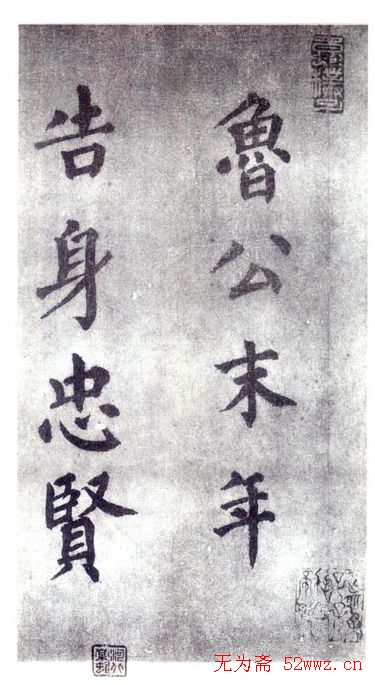 魯公末年
告身忠賢
无为斋 52wwz.cn